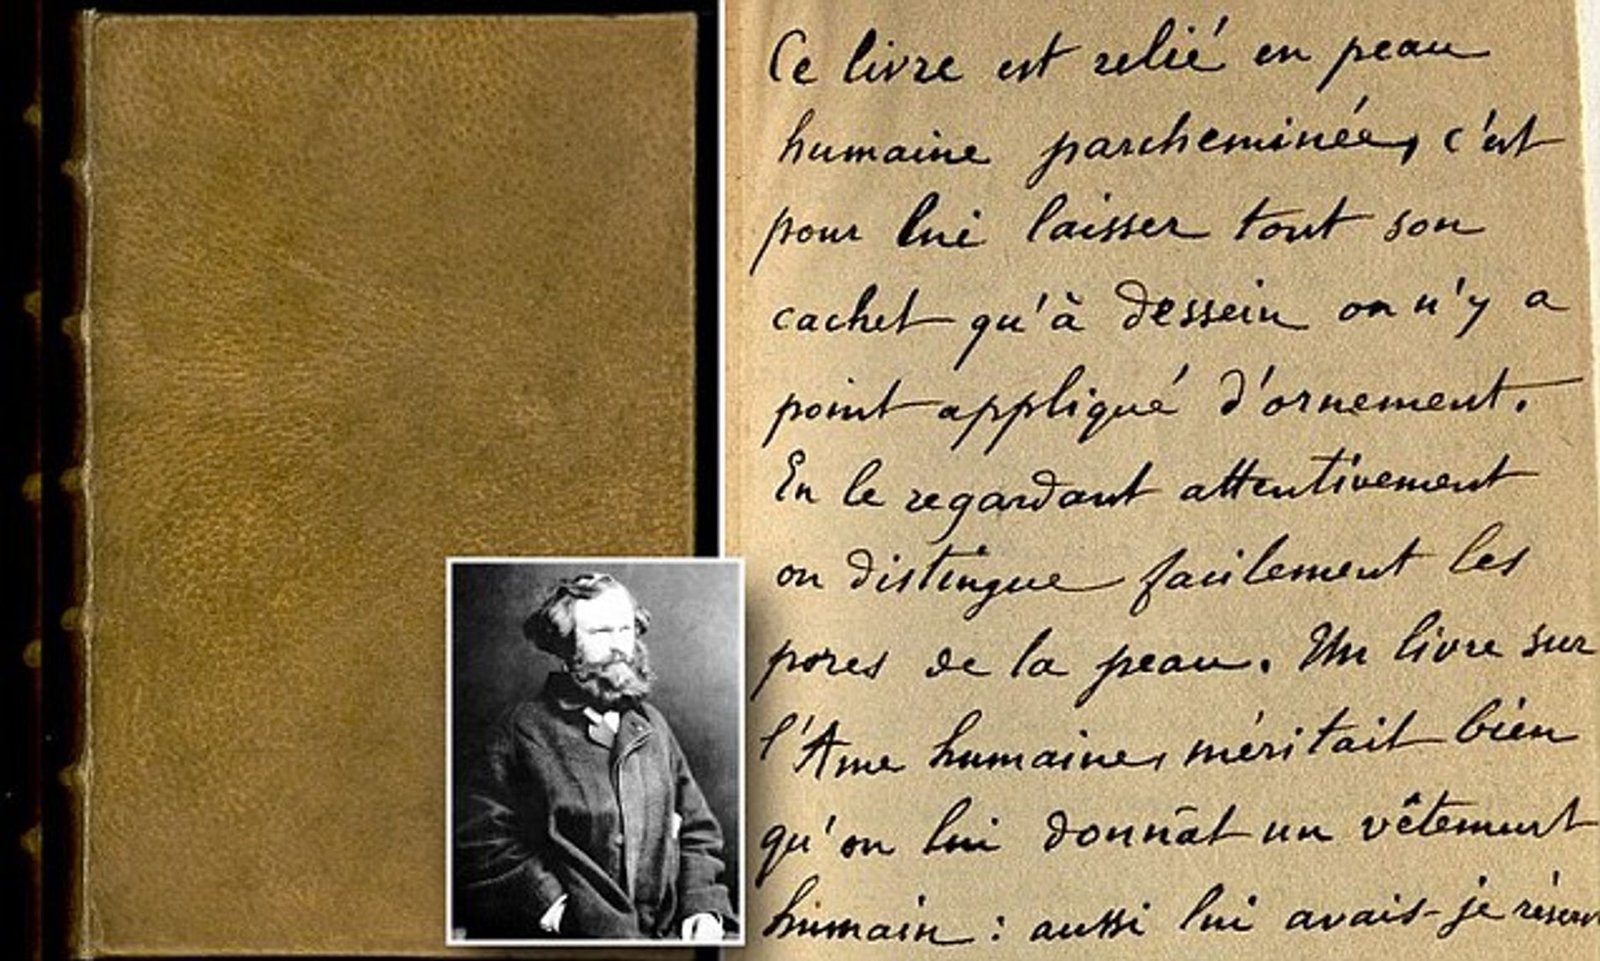 Ce livre est relié en peau
humaine parcheminée, c'est
pour lui laisser tout son
cachet qu'à dessein on n'y a
point appliqué d'ornement.
En le regardant attentivement
on distingue facilement les
pores de la peau. Un livre sur
l'Ame humaine, méritait bien
qu'on lui donnât un vêtement
humain : aussi lui avais-je réserv